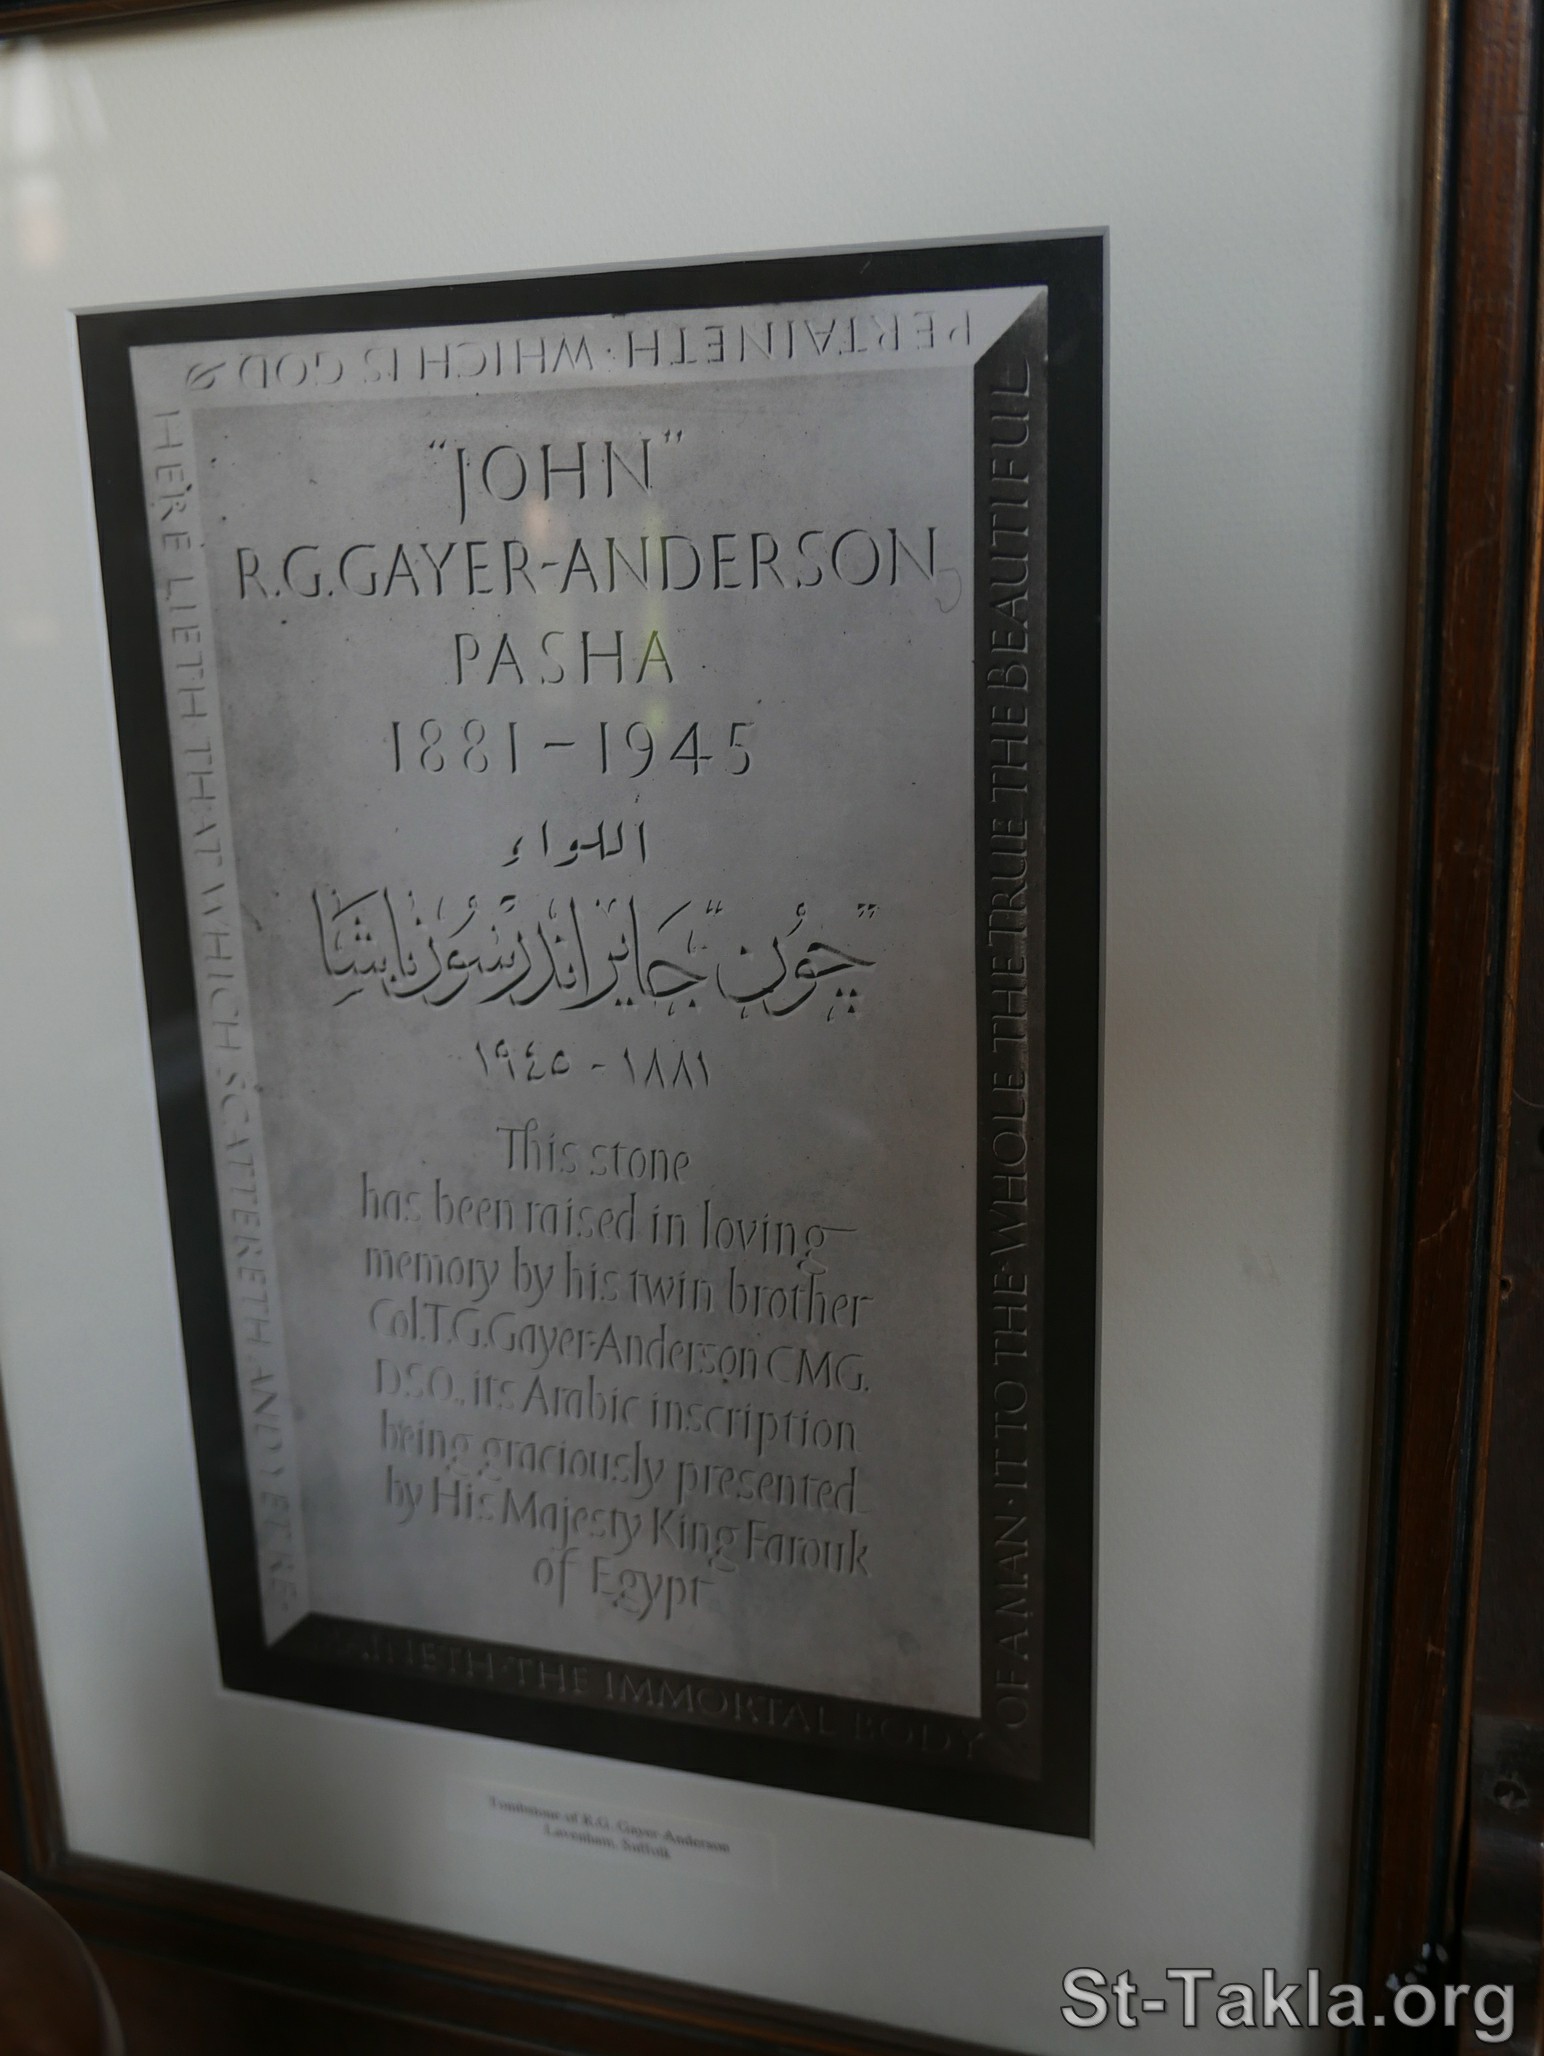 "JOHN"
R.G.GAYER-ANDERSON
PASHA
1881-1945
اللواء
"چوُن" جَايرَ اندرسُون بَاشَا
١٨٨١ - ١٩٤٥
This stone
has been raised in loving
memory by his twin brother
Col.T.G.Gayer-Anderson CMG.
D.S.O., its Arabic inscription
being graciously presented
by His Majesty King Farouk
of Egypt
HERE LIETH THAT WHICH SCATTERETH AND YET RE
MAINETH·THE IMMORTAL BODY
OF A MAN·IT TO THE·WHOLE THE TRUE THE BEAUTIFUL
PERTAINETH·WHICH IS GOD
Tombstone of R.G. Gayer-Anderson
Lavenham, Suffolk
St-Takla.org